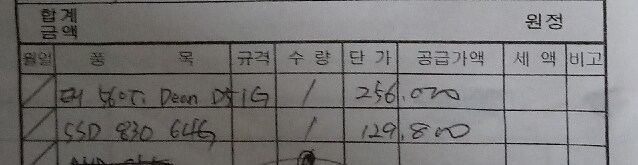 합계
금액 원정
월일 품 목 규격 수 량 단 가 공급가액 세 액 비고
560Ti Dean D5 1G 1 256,000
SSD 830 64G 1 129,800